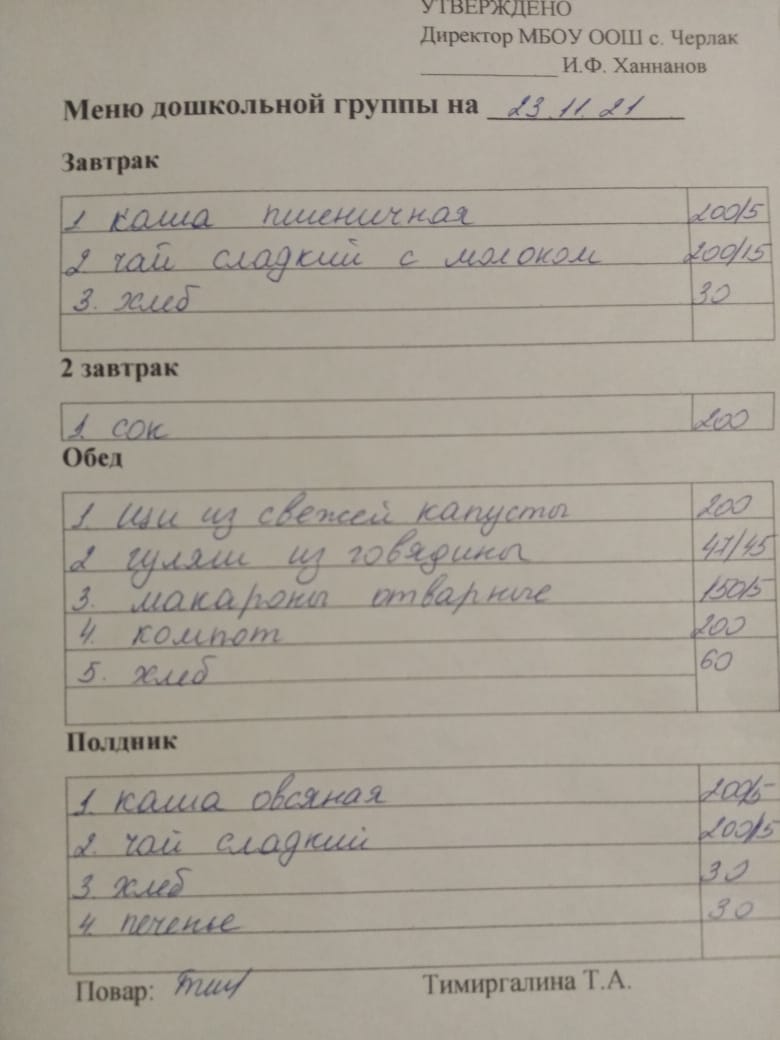 УТВЕРЖДЕНО
Директор МБОУ ООШ с. Черлак
____________ И.Ф. Ханнанов
Меню дошкольной группы на 23.11.21
Завтрак
1 каша пшеничная 200/5
2 чай сладкий с молоком 200/15
3. хлеб 30
2 завтрак
1. сок 200
Обед
1. Щи из свежей капусты 200
2 гуляш из говядины 47/45
3. макароны отварные 150/5
4. компот 200
5. хлеб 60
Полдник
1. каша овсяная 200/5
2. чай сладкий 200/15
3. хлеб 30
4. печенье 30
Повар: Тимиргалина Т.А.